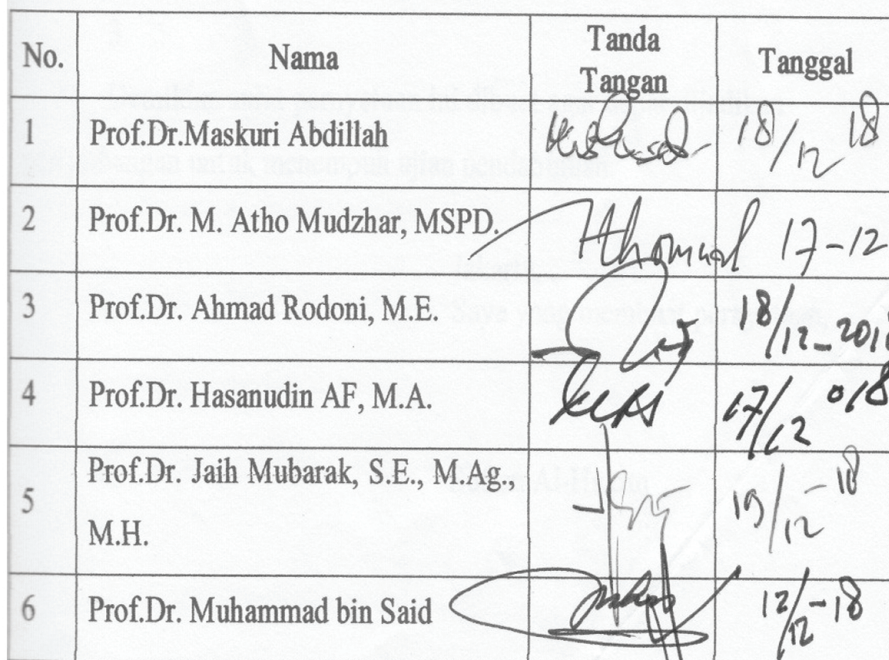 No. Nama Tanda Tangan Tanggal
1 Prof.Dr.Maskuri Abdillah 18/12 18
2 Prof.Dr. M. Atho Mudzhar, MSPD. 17-12
3 Prof.Dr. Ahmad Rodoni, M.E. 18/12-201
4 Prof.Dr. Hasanudin AF, M.A. 17/12 018
5 Prof.Dr. Jaih Mubarak, S.E., M.Ag.,
M.H. 19/12-18
6 Prof.Dr. Muhammad bin Said 12/12-18